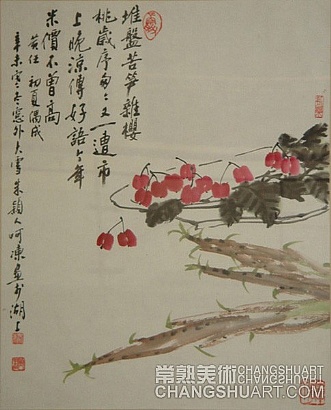 堆盤苦笋雜櫻
桃歲序匆匆又一遭市
上晚凉傳好語今年
米價不曾高
黄任 初夏偶成
辛未寒冬窓外大雪朱錦人呵凍畫於湖上
常熟美術 CHANGSHUART
CHANGSHUART.COM